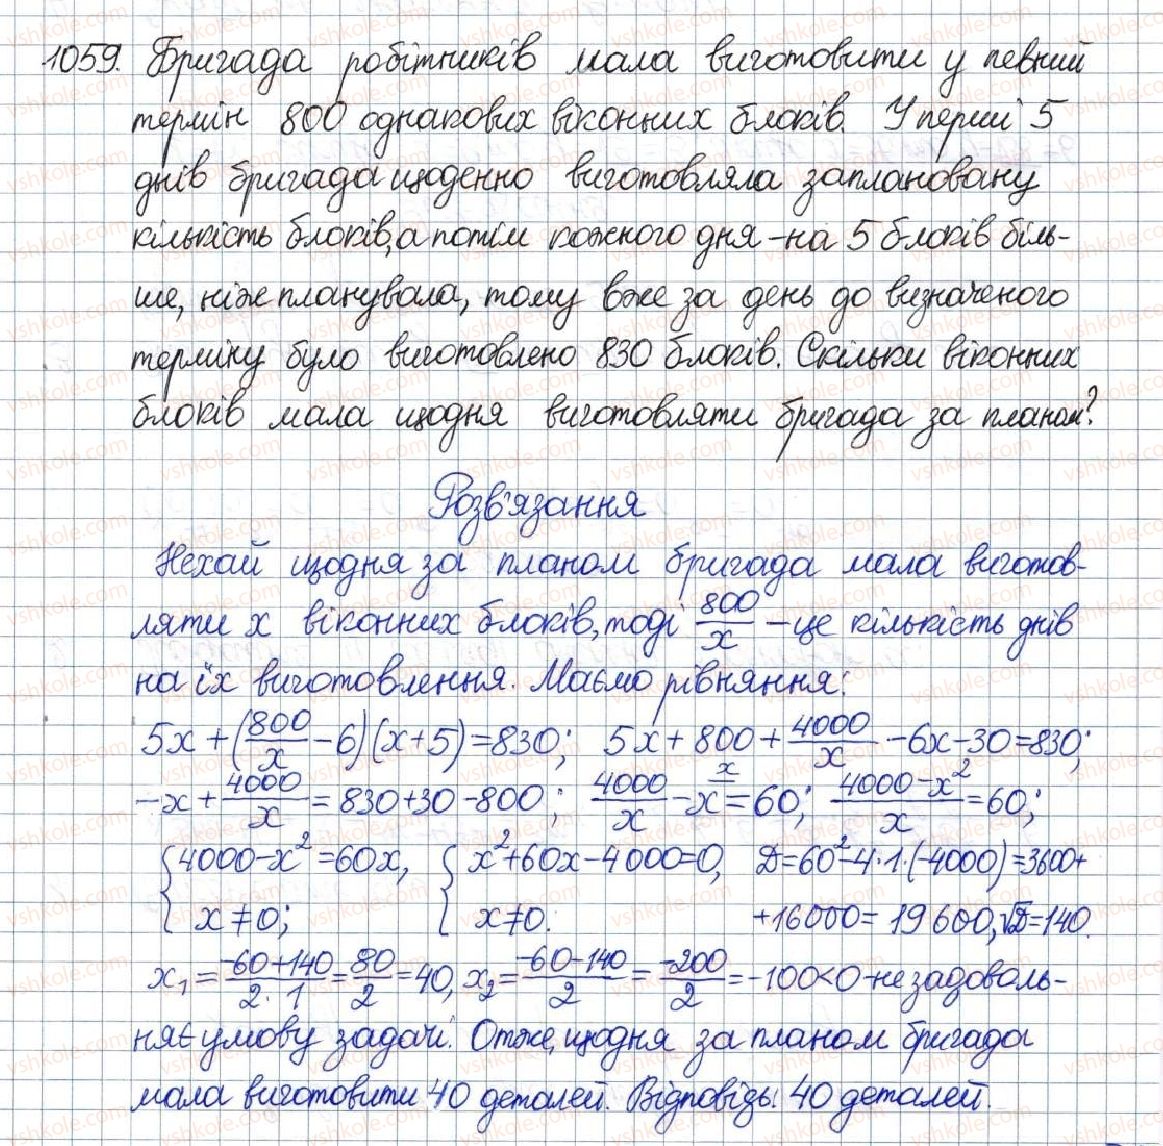 1059. Бригада робітників мала виготовити у певний
термін 800 однакових віконних блоків. У перші 5
днів бригада щоденно виготовляла заплановану
кількість блоків, а потім кожного дня - на 5 блоків біль-
ше, ніж планувала, тому вже за день до визначеного
терміну було виготовлено 830 блоків. Скільки віконних
блоків мала щодня виготовляти бригада за планом?
Розв'язання
Нехай щодня за планом бригада мала виготов-
ляти x віконних блоків, тоді 800/x - це кількість днів
на їх виготовлення. Маємо рівняння:
5x + (800/x - 6)(x + 5) = 830; 5x + 800 + 4000/x - 6x - 30 = 830;
-x + 4000/x = 830 + 30 - 800; 4000/x - x = 60; (4000 - x²)/x = 60;
{4000 - x² = 60x, {x² + 60x - 4000 = 0, D = 60² - 4·1·(-4000) = 3600 +
x ≠ 0; x ≠ 0. + 16000 = 19600, √D = 140.
x₁ = (-60 + 140)/(2·1) = 80/2 = 40, x₂ = (-60 - 140)/2 = -200/2 = -100 < 0 - не задоволь-
няє умову задачі. Отже, щодня за планом бригада
мала виготовити 40 деталей. Відповідь: 40 деталей.